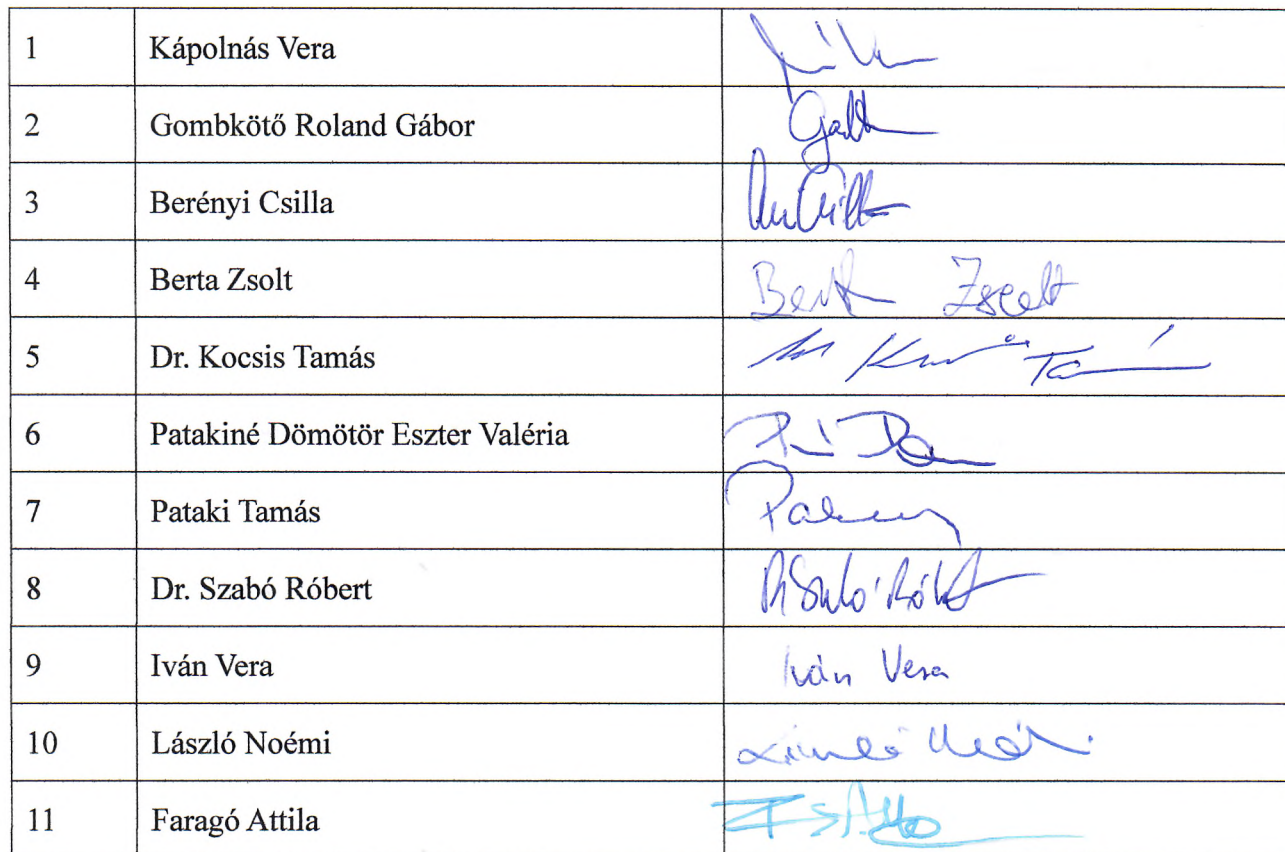 1 Kápolnás Vera
2 Gombkötő Roland Gábor
3 Berényi Csilla
4 Berta Zsolt Berta Zsolt
5 Dr. Kocsis Tamás
6 Patakiné Dömötör Eszter Valéria
7 Pataki Tamás
8 Dr. Szabó Róbert
9 Iván Vera Iván Vera
10 László Noémi
11 Faragó Attila